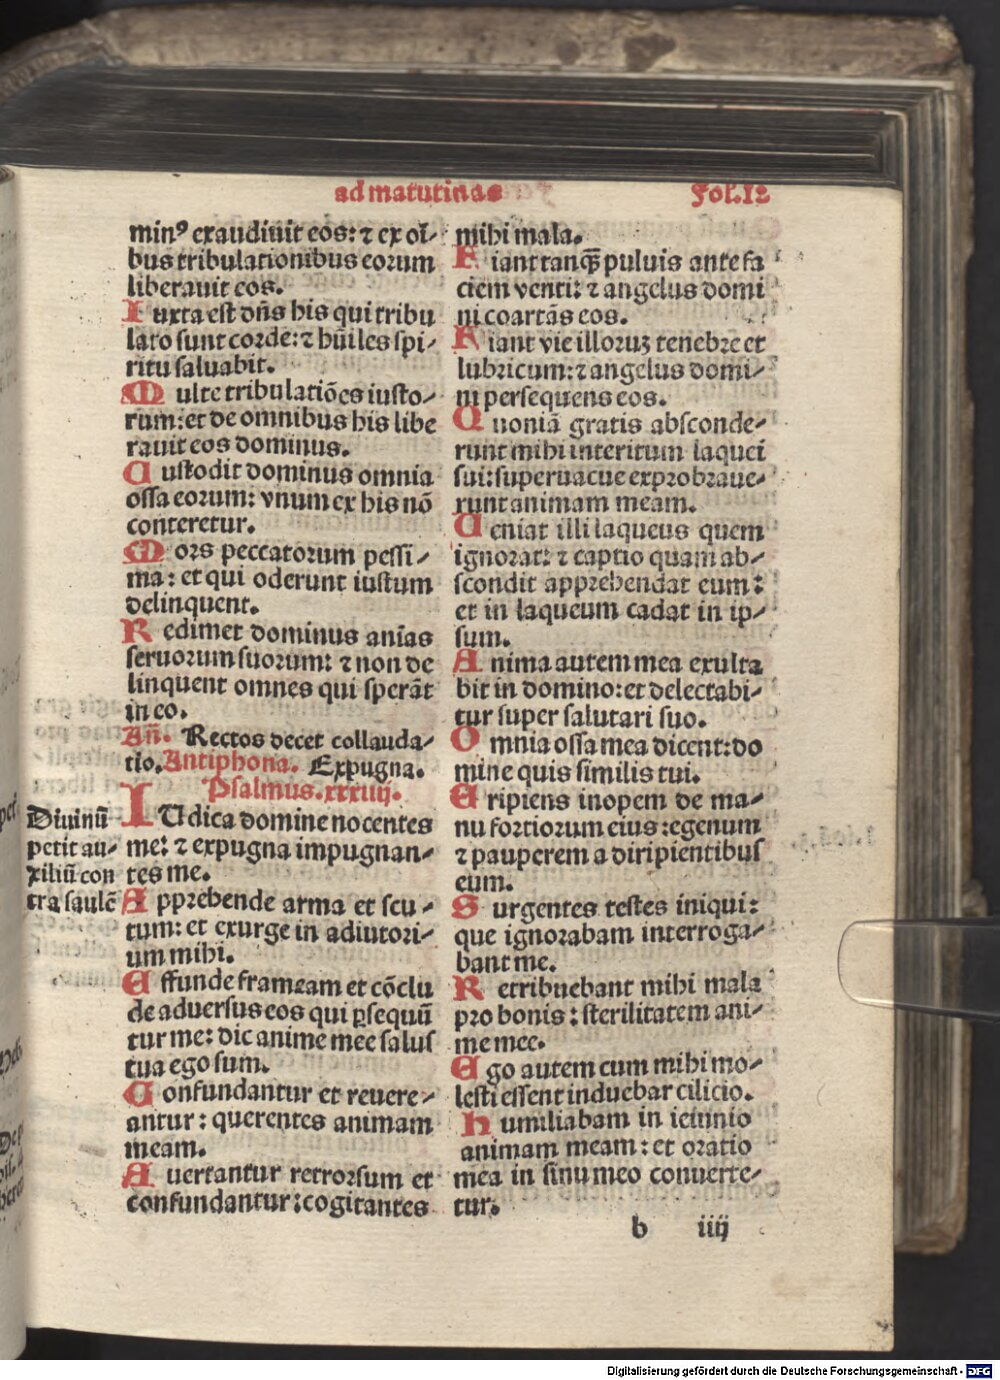 ad matutinas
Fol. 12
minꝰ exaudiuit eos: ⁊ ex oĺ-
bus tribulationibus eorum
liberauit eos.
Iuxta est dñs his qui tribu
lato sunt corde: ⁊ hũiles spi-
ritu saluabit.
Multe tribulatiões iusto-
rum: et de omnibus his libe
rauit eos dominus.
Custodit dominus omnia
ossa eorum: vnum ex his nõ
conteretur.
Mors peccatorum pessi-
ma: et qui oderunt iustum
delinquent.
Redimet dominus anĩas
seruorum suorum: ⁊ non de
linquent omnes qui sperãt
in eo.
Añ. Rectos decet collauda-
tio. Antiphona. Expugna.
Psalmus. xxxiiij.
IUdica domine nocentes
me: ⁊ expugna impugnan-
tes me.
Apprehende arma et scu-
tum: et exurge in adiutori-
um mihi.
Effunde frameam et cõclu
de aduersus eos qui ꝑsequũ
tur me: dic anime mee salus
tua ego sum.
Confundantur et reuere-
antur: querentes animam
meam.
Auertantur retrorsum et
confundantur: cogitantes
Diuinũ
petit au-
xiliũ con
tra saulẽ
mihi mala.
Fiant tanqꝫ puluis ante fa
ciem venti: ⁊ angelus domi
ni coartãs eos.
Fiant vie illoruꝫ tenebre et
lubricum: ⁊ angelus domi-
ni persequens eos.
Quoniã gratis absconde-
runt mihi interitum laquei
sui: superuacue exprobraue-
runt animam meam.
Ueniat illi laqueus quem
ignorat: ⁊ captio quam ab-
scondit apprehendat eum:
et in laqueum cadat in ip-
sum.
Anima autem mea exulta
bit in domino: et delectabi-
tur super salutari suo.
Omnia ossa mea dicent: do
mine quis similis tui.
Eripiens inopem de ma-
nu fortiorum eius: egenum
⁊ pauperem a diripientibus
eum.
Surgentes testes iniqui:
que ignorabam interroga-
bant me.
Retribuebant mihi mala
pro bonis: sterilitatem ani-
me mee.
Ego autem cum mihi mo-
lesti essent induebar cilicio.
Humiliabam in ieiunio
animam meam: et oratio
mea in sinu meo conuerte-
tur.
b iiij
Digitalisierung gefördert durch die Deutsche Forschungsgemeinschaft - DFG